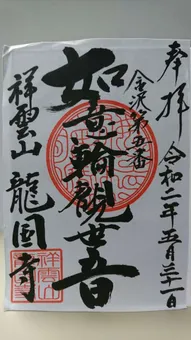 奉拝
令和二年五月三十一日
金沢第五番
如意輪観世音
祥雲山
龍国寺